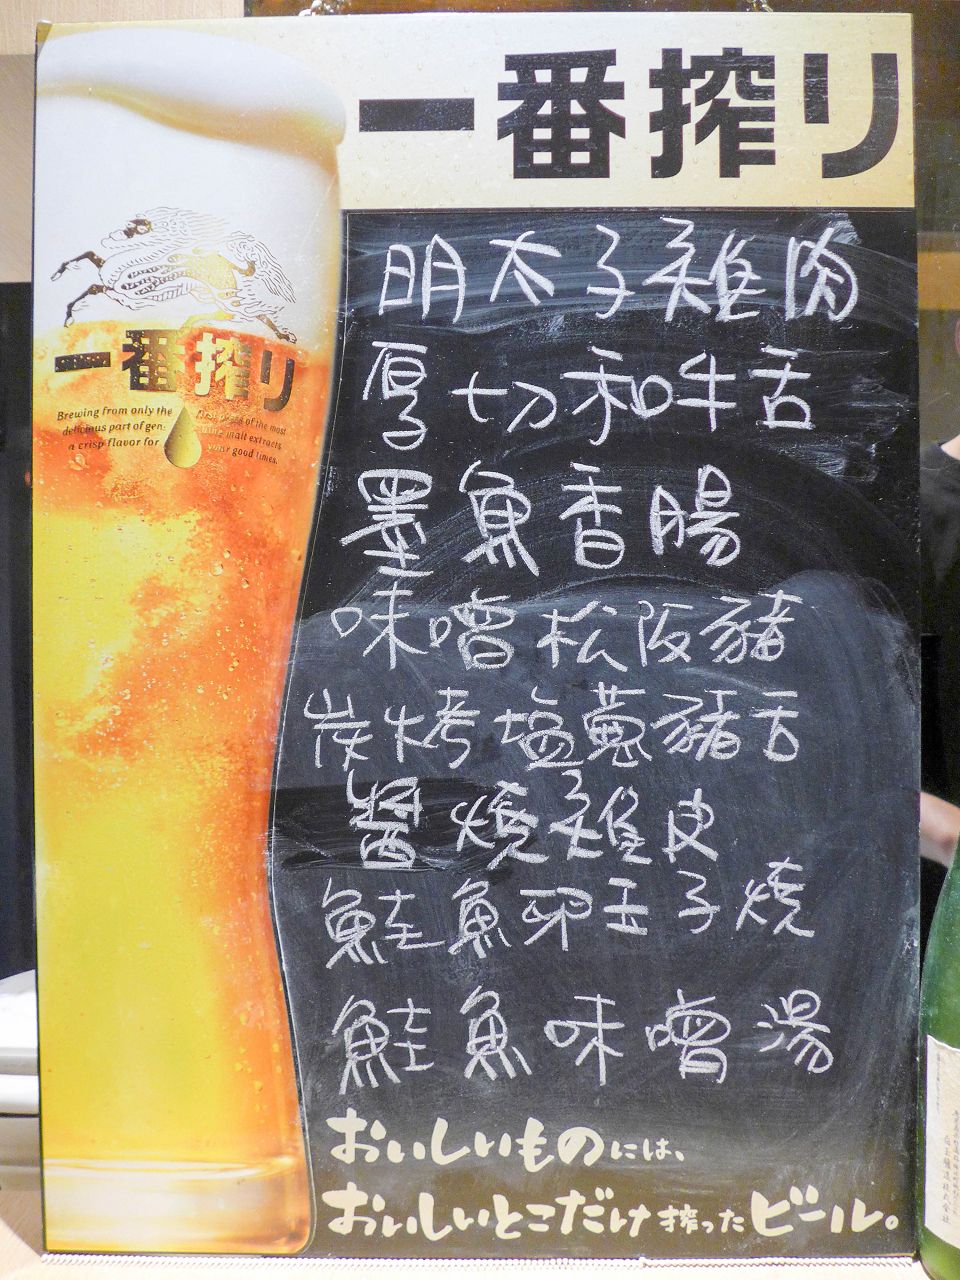 一番搾り
明太子雞肉
厚切和牛舌
墨魚香腸
味噌松阪豬
炭烤塩蔥豬舌
醬燒雞皮
鮭魚卵玉子燒
鮭魚味噌湯
おいしいものには、
おいしいとこだけ搾ったビール。
一番搾り
Brewing from only the
delicious part of gen:
a crisp flavor for
first press of the most
your good times.